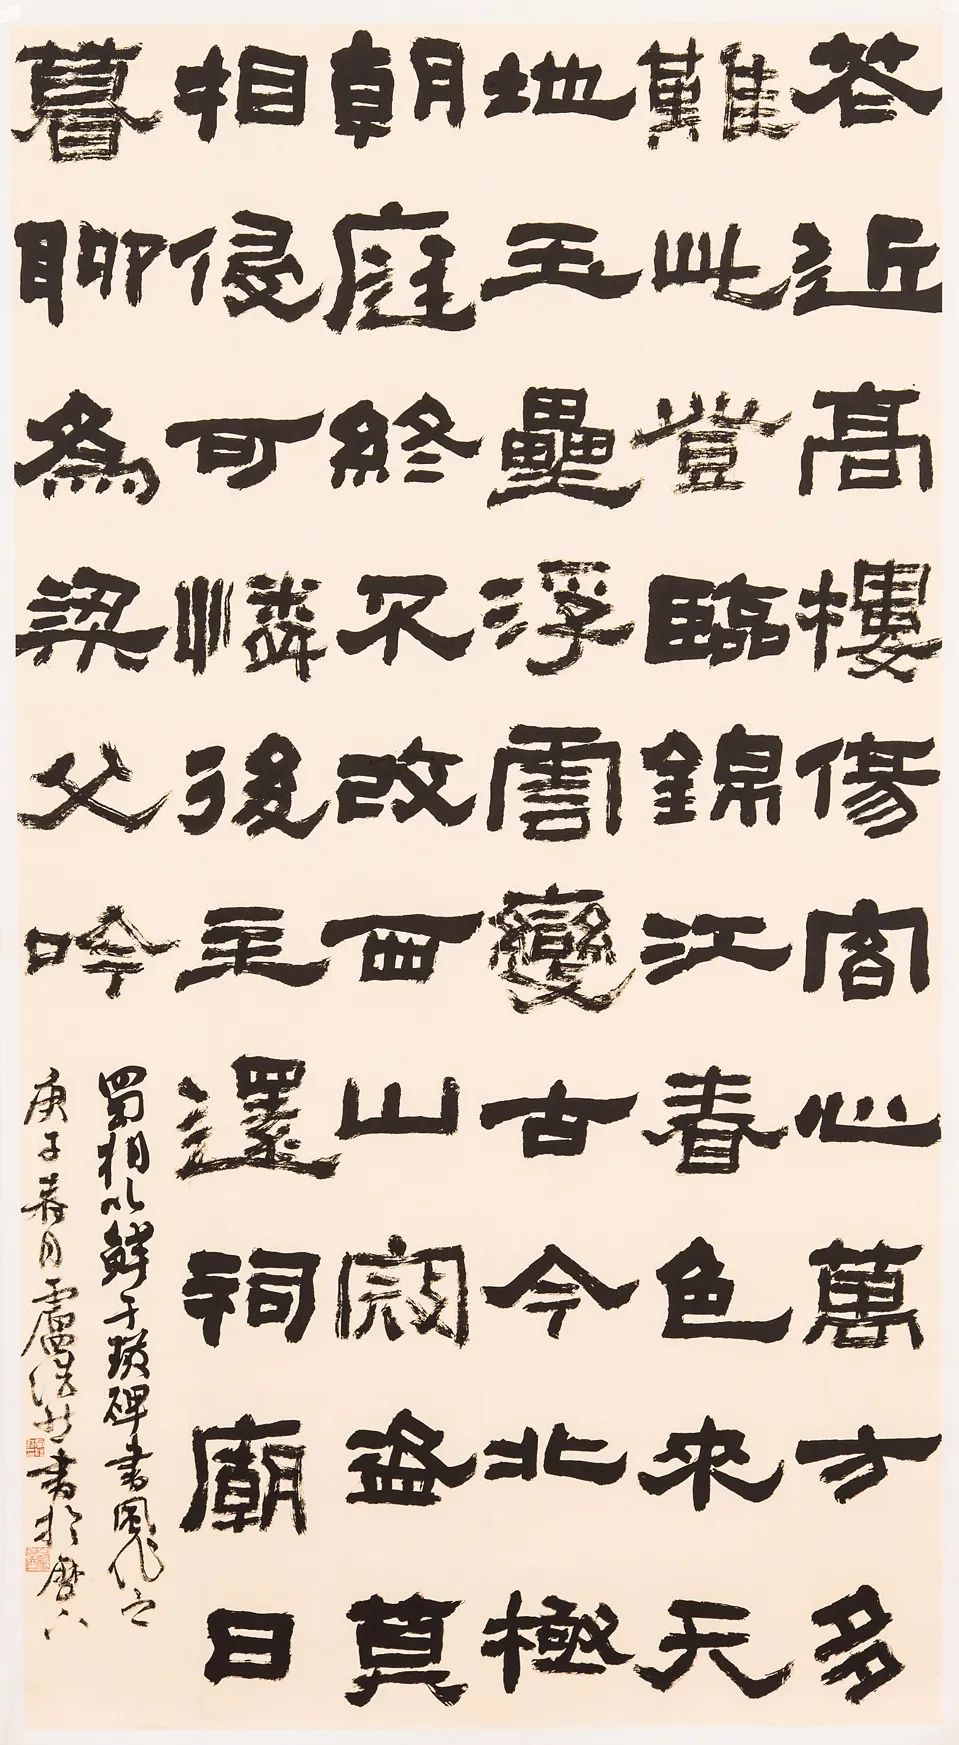 花近高樓傷客心萬方多
難此登臨錦江春色來天
地玉壘浮雲變古今北極
朝庭終不改西山寇盗莫
相侵可憐後主還祠廟日
暮聊為梁父吟
蜀相以鮮于璜碑書風作之
庚子春月盧書於